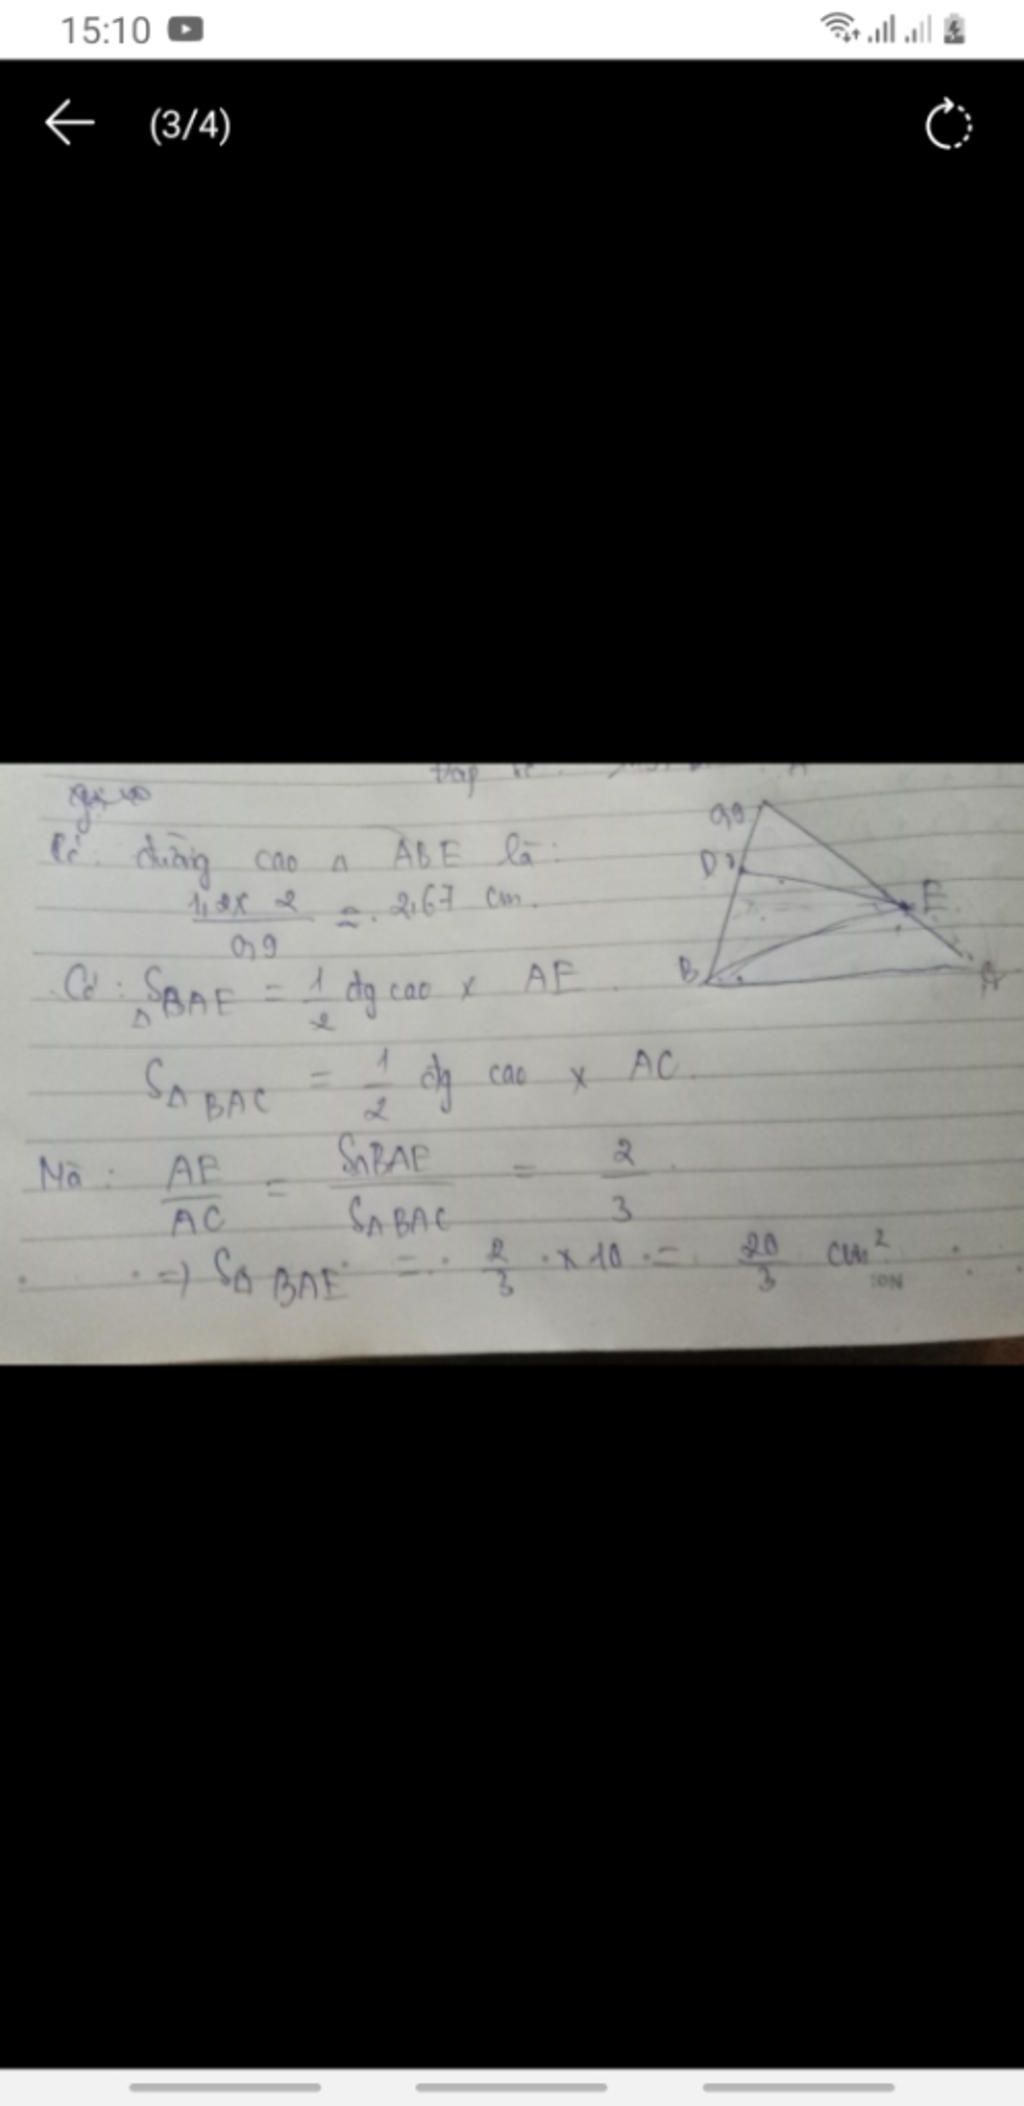 15:10
(3/4)
đường cao Δ ABE là:
1,2 x 2 / 0,9 = 2,67 cm.
Có: SΔBAE = 1/2 đg cao x AE.
SΔBAC = 1/2 đg cao x AC.
Mà: AE/AC = SΔBAE/SΔBAC = 2/3
=> SΔBAE = 2/3 x 10 = 20/3 cm²
D
E
B